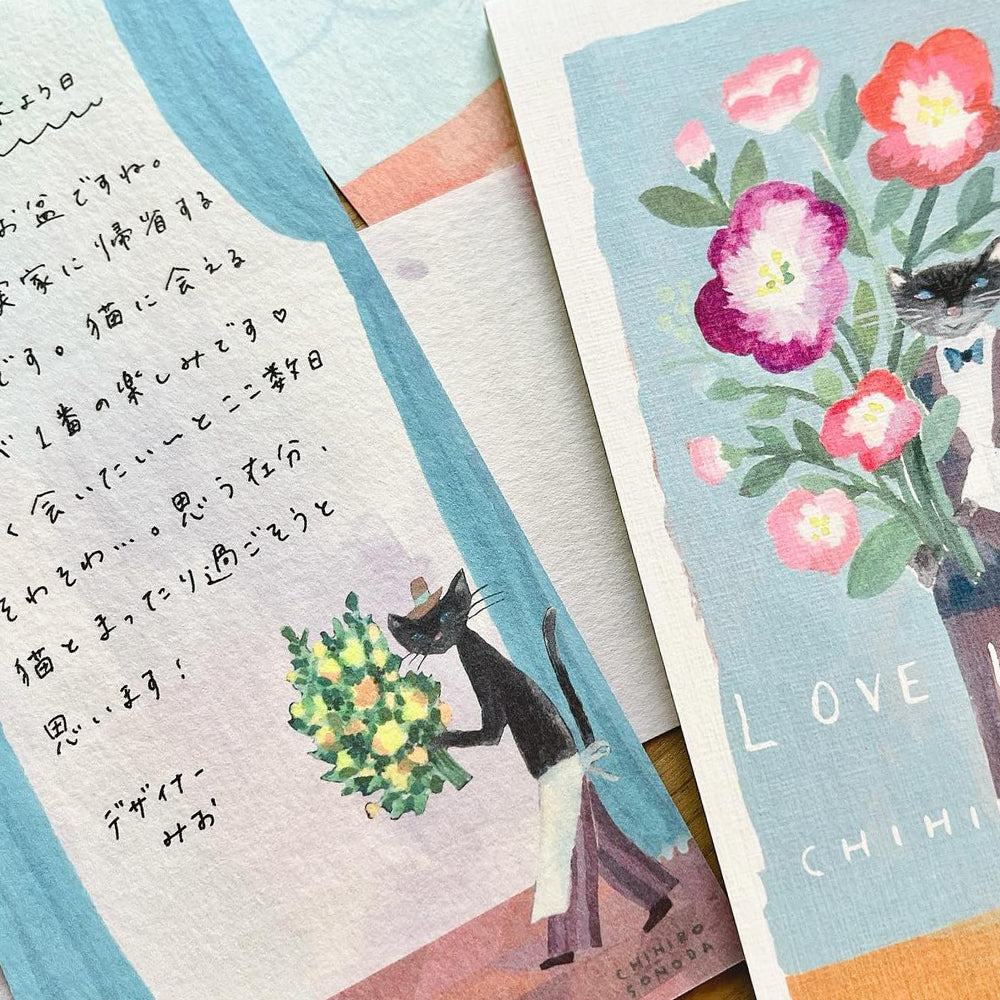 より日
お盆ですね。
実家に帰省する
です。猫に会える
1番の楽しみです♡
く会いたい〜とここ数日
そわそわ…。思う存分、
猫とまったり過ごそうと
思います！
デザイナー
みお
CHIHIRO
SONODA
LOVE
CHIHI